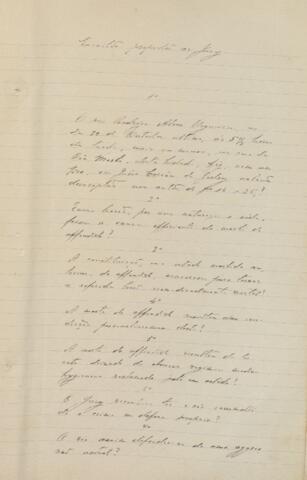 Quesitos propostos ao Jury
1º
O reo Rodrigo Alves Nogueira, no
dia 20 de Outubro ultimo, ás 5 ½ horas
da tarde, mais ou menos, na rua da
desta cidade, fez, com um
tiro, em João de a lesão
descripta nos autos de fls 12 e 25,?
2º
Essa lesão, por sua natureza e séde,
foram a causa efficiente da morte do
offendido?
3º
A constituição ou estado morbido an-
terior do offendido, concorreu para tornar
a referida lesão irremediavelmente mortal?
4º
A morte do offendido resultou das con-
dições personalissimas deste?
5º
A morte do offendido resultou de ter
este deixado de observar regimen medico
hygienico reclamado pelo seu estado?
6º
O Jury reconhece ter o réo commetti-
do o crime em defesa propria?
7º
O réo deffendendo-se de uma aggres-
são actual?